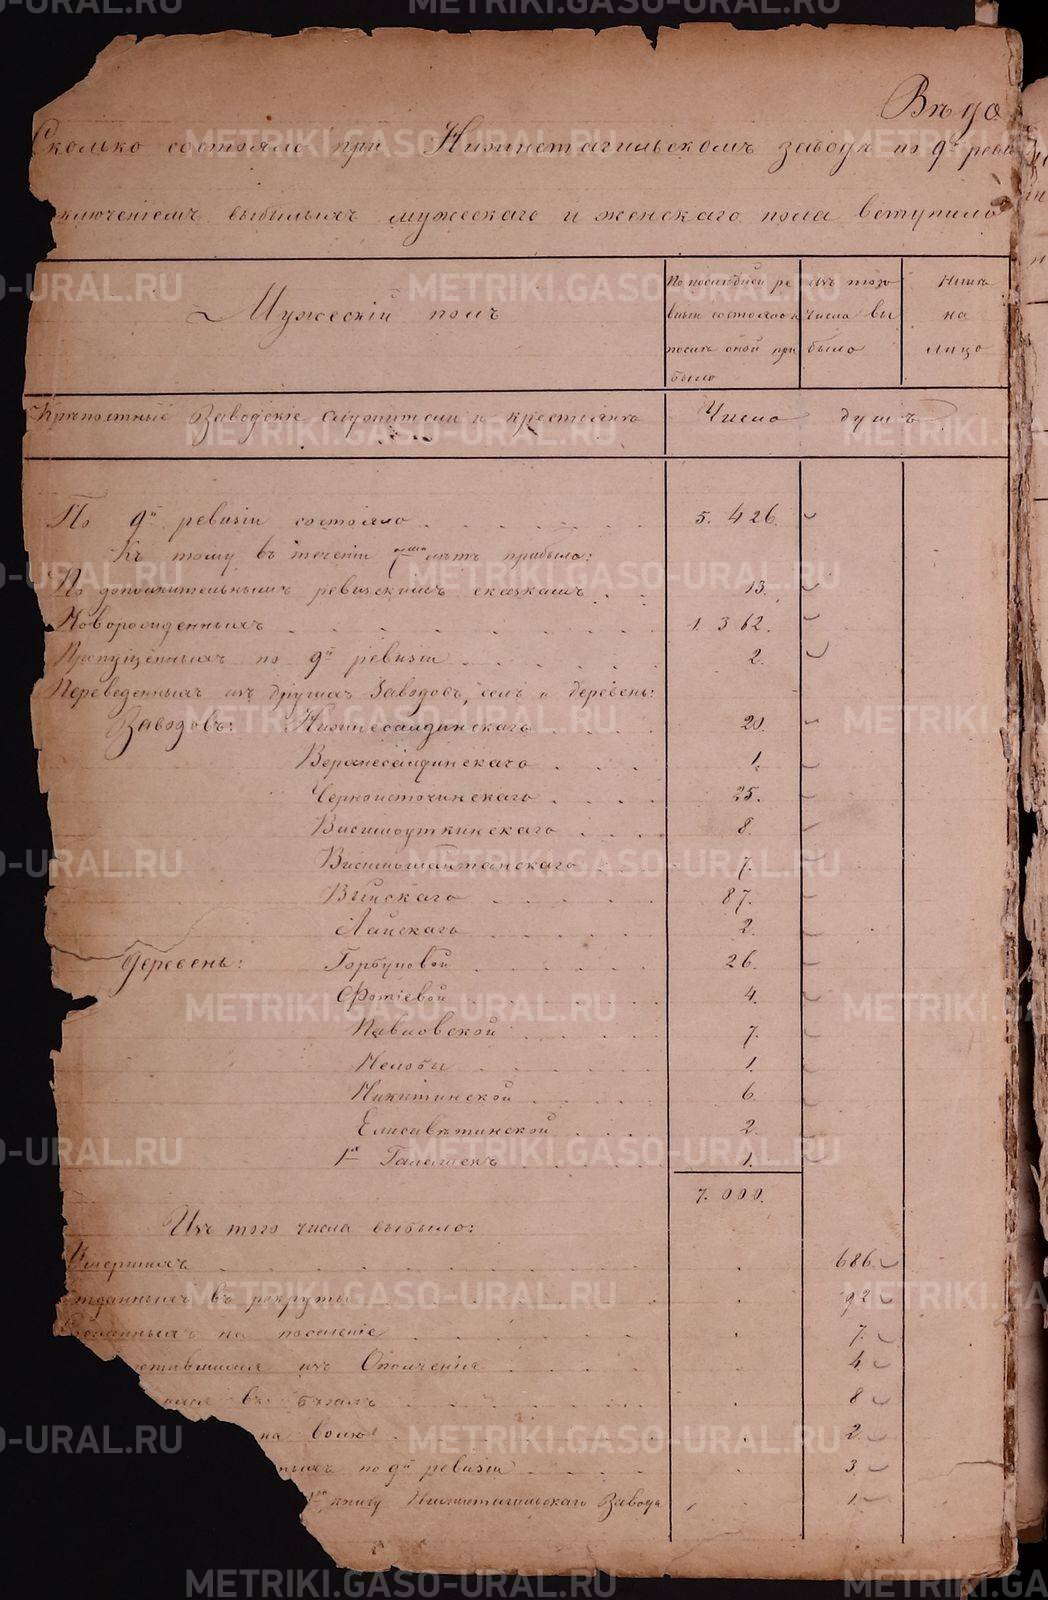 Вѣдо
Сколько состояло при Нижнетагильскомъ заводѣ по 9й реви
ключеніемъ выбылыхъ мужескаго и женскаго пола вступило
Мужескій полъ
По послѣдней ре
визіи состояло и
послѣ оной при
было
Изъ того
числа вы
было
Нынѣ
на
лицо
Крѣпостные Заводскіе служители и крестьянъ
Число душъ
По 9й ревизіи состояло 5.426.
Къ тому въ теченіи лѣтъ прибыло:
По дополнительнымъ ревизскимъ сказкамъ 13.
Новорожденныхъ 1.362.
Пропущенныхъ по 9й ревизіи 2.
Переведенныхъ изъ другихъ Заводовъ, селъ и деревень:
Заводовъ: Нижнесалдинскаго 20.
Верхнесалдинскаго 1.
Черноисточинскаго 25.
Висимоуткинскаго 8.
Висимошайтанскаго 7.
Выйскаго 87.
Лайскаго 2.
Деревень: Горбуновой 26.
Фотіевой 4.
Павловской 7.
Нелобы 1.
Никитинской 6
Елисавѣтинской 2.
1хъ Галашекъ 1.
7.000.
Изъ того числа выбыло:
Умершихъ 686.
тданныхъ въ рекруты 92
Сосланныхъ на поселеніе 7.
ратившихся изъ Ополченія 4.
хся въ бѣгахъ 8
на волю 2.
ныхъ по 9й ревизіи 3.
1ю книгу Нижнетагильскаго Завода 1.
METRIKI.GASO-URAL.RU